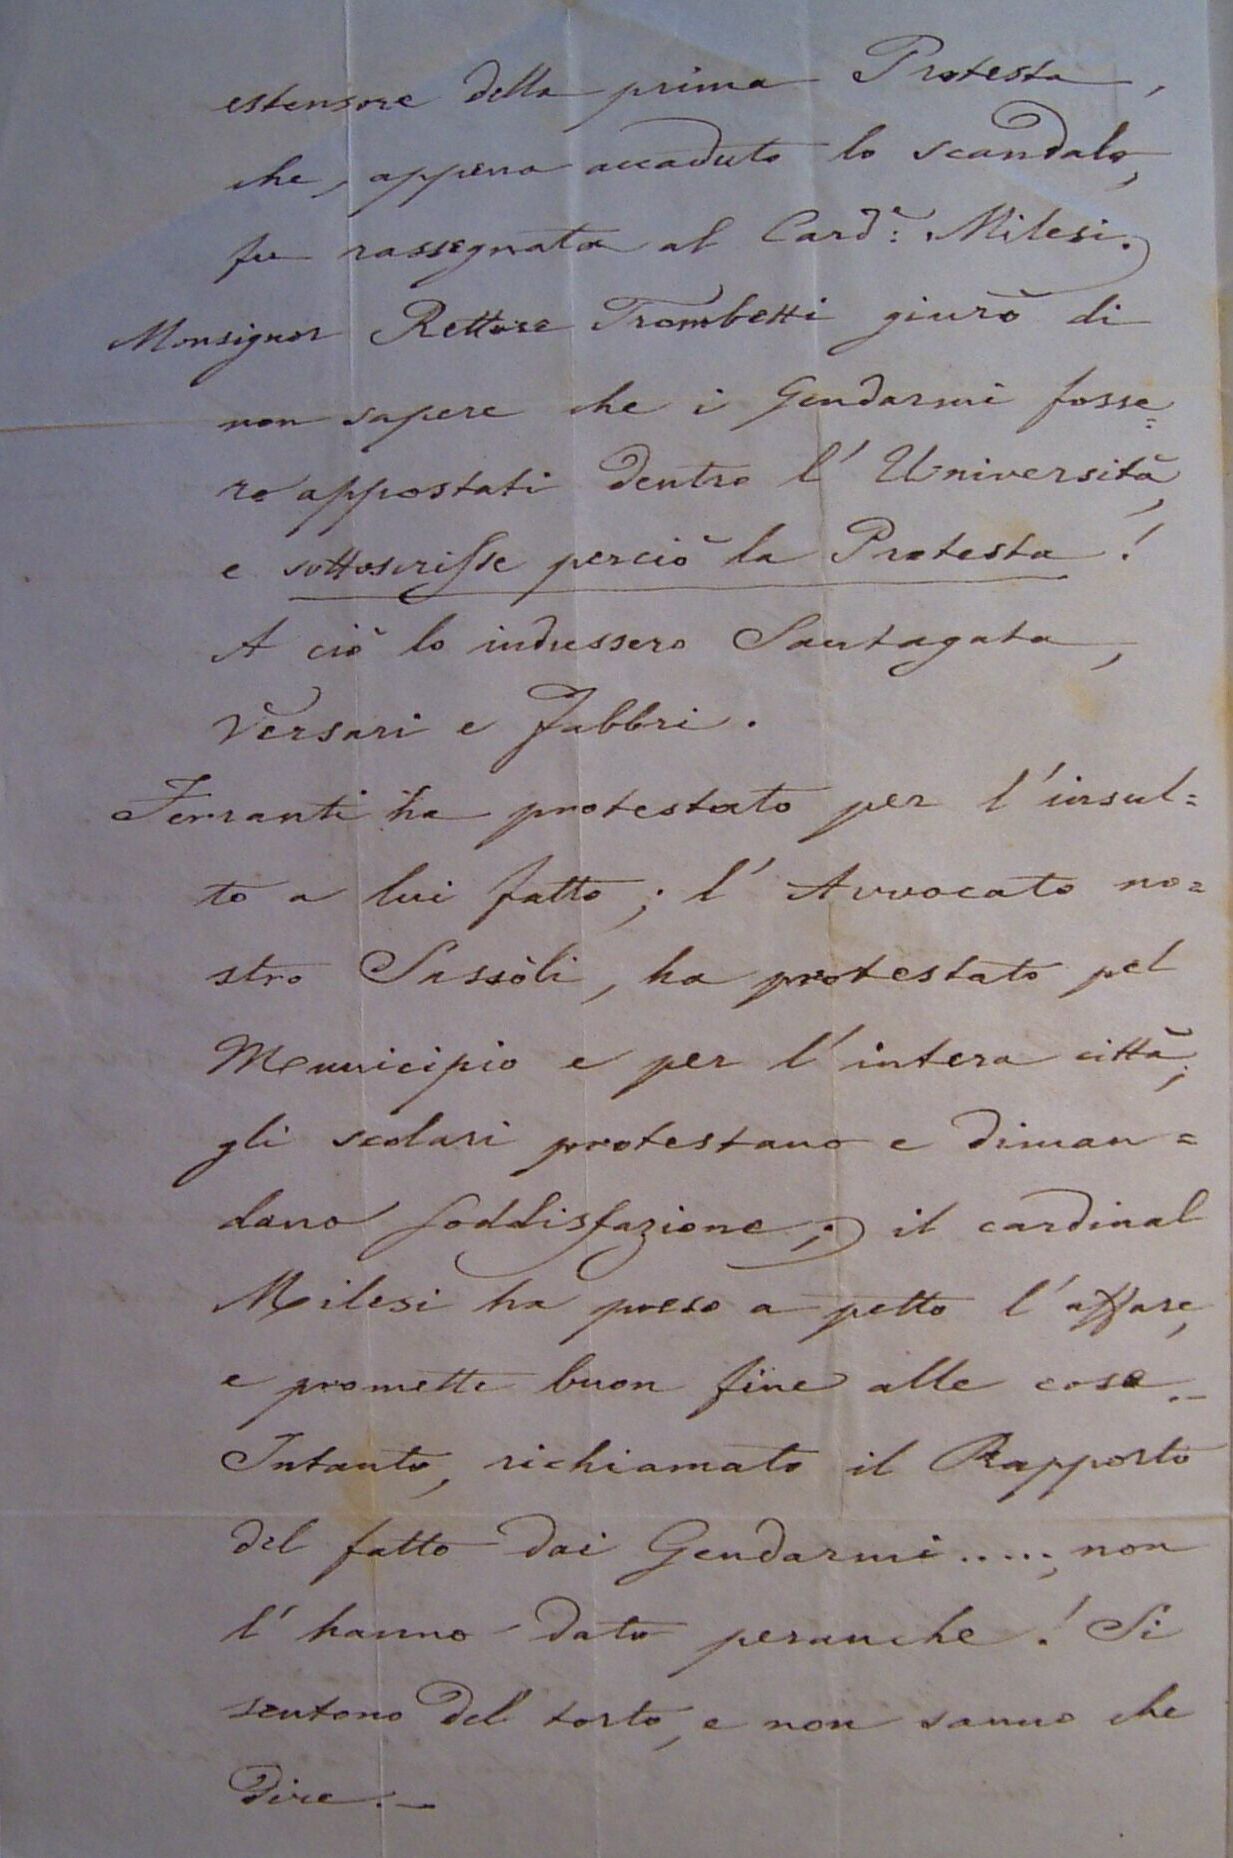 estensore della prima Protesta,
che, appena accaduto lo scandalo,
fu rassegnata al Card.e Milesi.
Monsignor Rettore Trombetti giurò di
non sapere che i Gendarmi fosse=
ro appostati dentro l'Università,
e sottoscrisse perciò la Protesta!
A ciò lo indussero Santagata,
Versari e Fabbri.
Ferranti ha protestato per l'insul=
to a lui fatto; l'Avvocato no=
stro Sassòli, ha protestato pel
Municipio e per l'intera città;
gli scolari protestano e diman=
dano soddisfazione; il cardinal
Milesi ha preso a petto l'affare,
e promette buon fine alle cose._
Intanto, richiamato il Rapporto
del fatto dai Gendarmi....., non
l'hanno dato peranche! Si
sentono del torto, e non sanno che
dire._